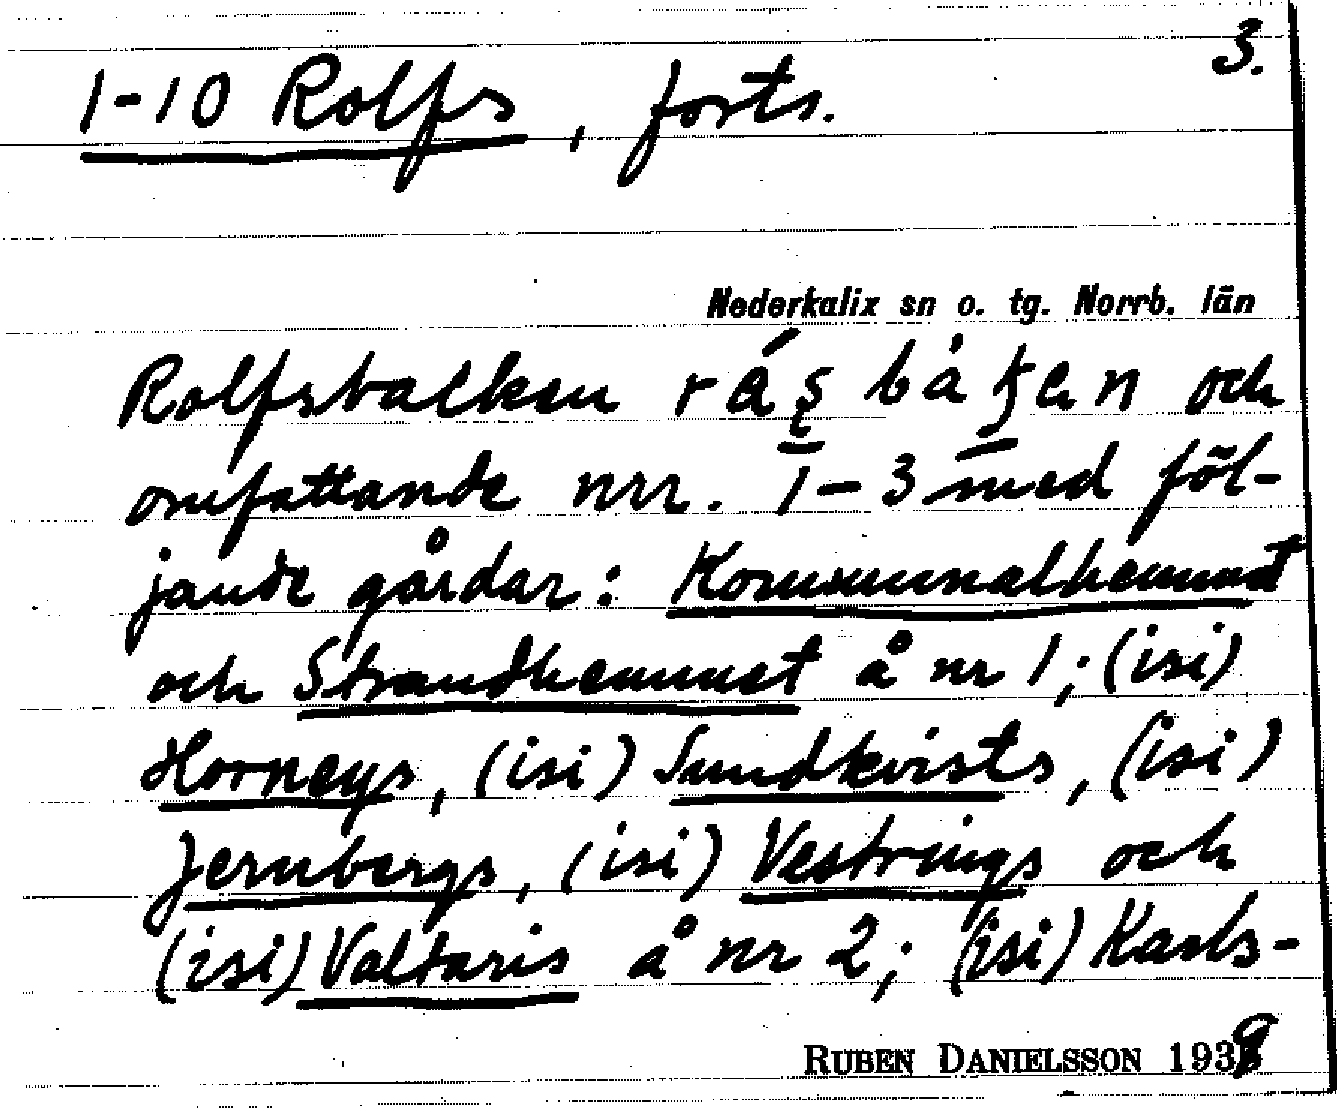 3.
1-10 Rolfs, forts.
Nederkalix sn o. tg. Norrb. län
Rolfsbacken och
omfattande nrr. 1-3 med föl-
jande gårdar: Kommunalhemmet
och Strandhemmet å nr 1; (isi)
Horneys, (isi) Sundkvists, (isi)
Jernbergs, (isi) Vestrings och
(isi) Valtaris å nr 2; (isi) Karls-
RUBEN DANIELSSON 1939